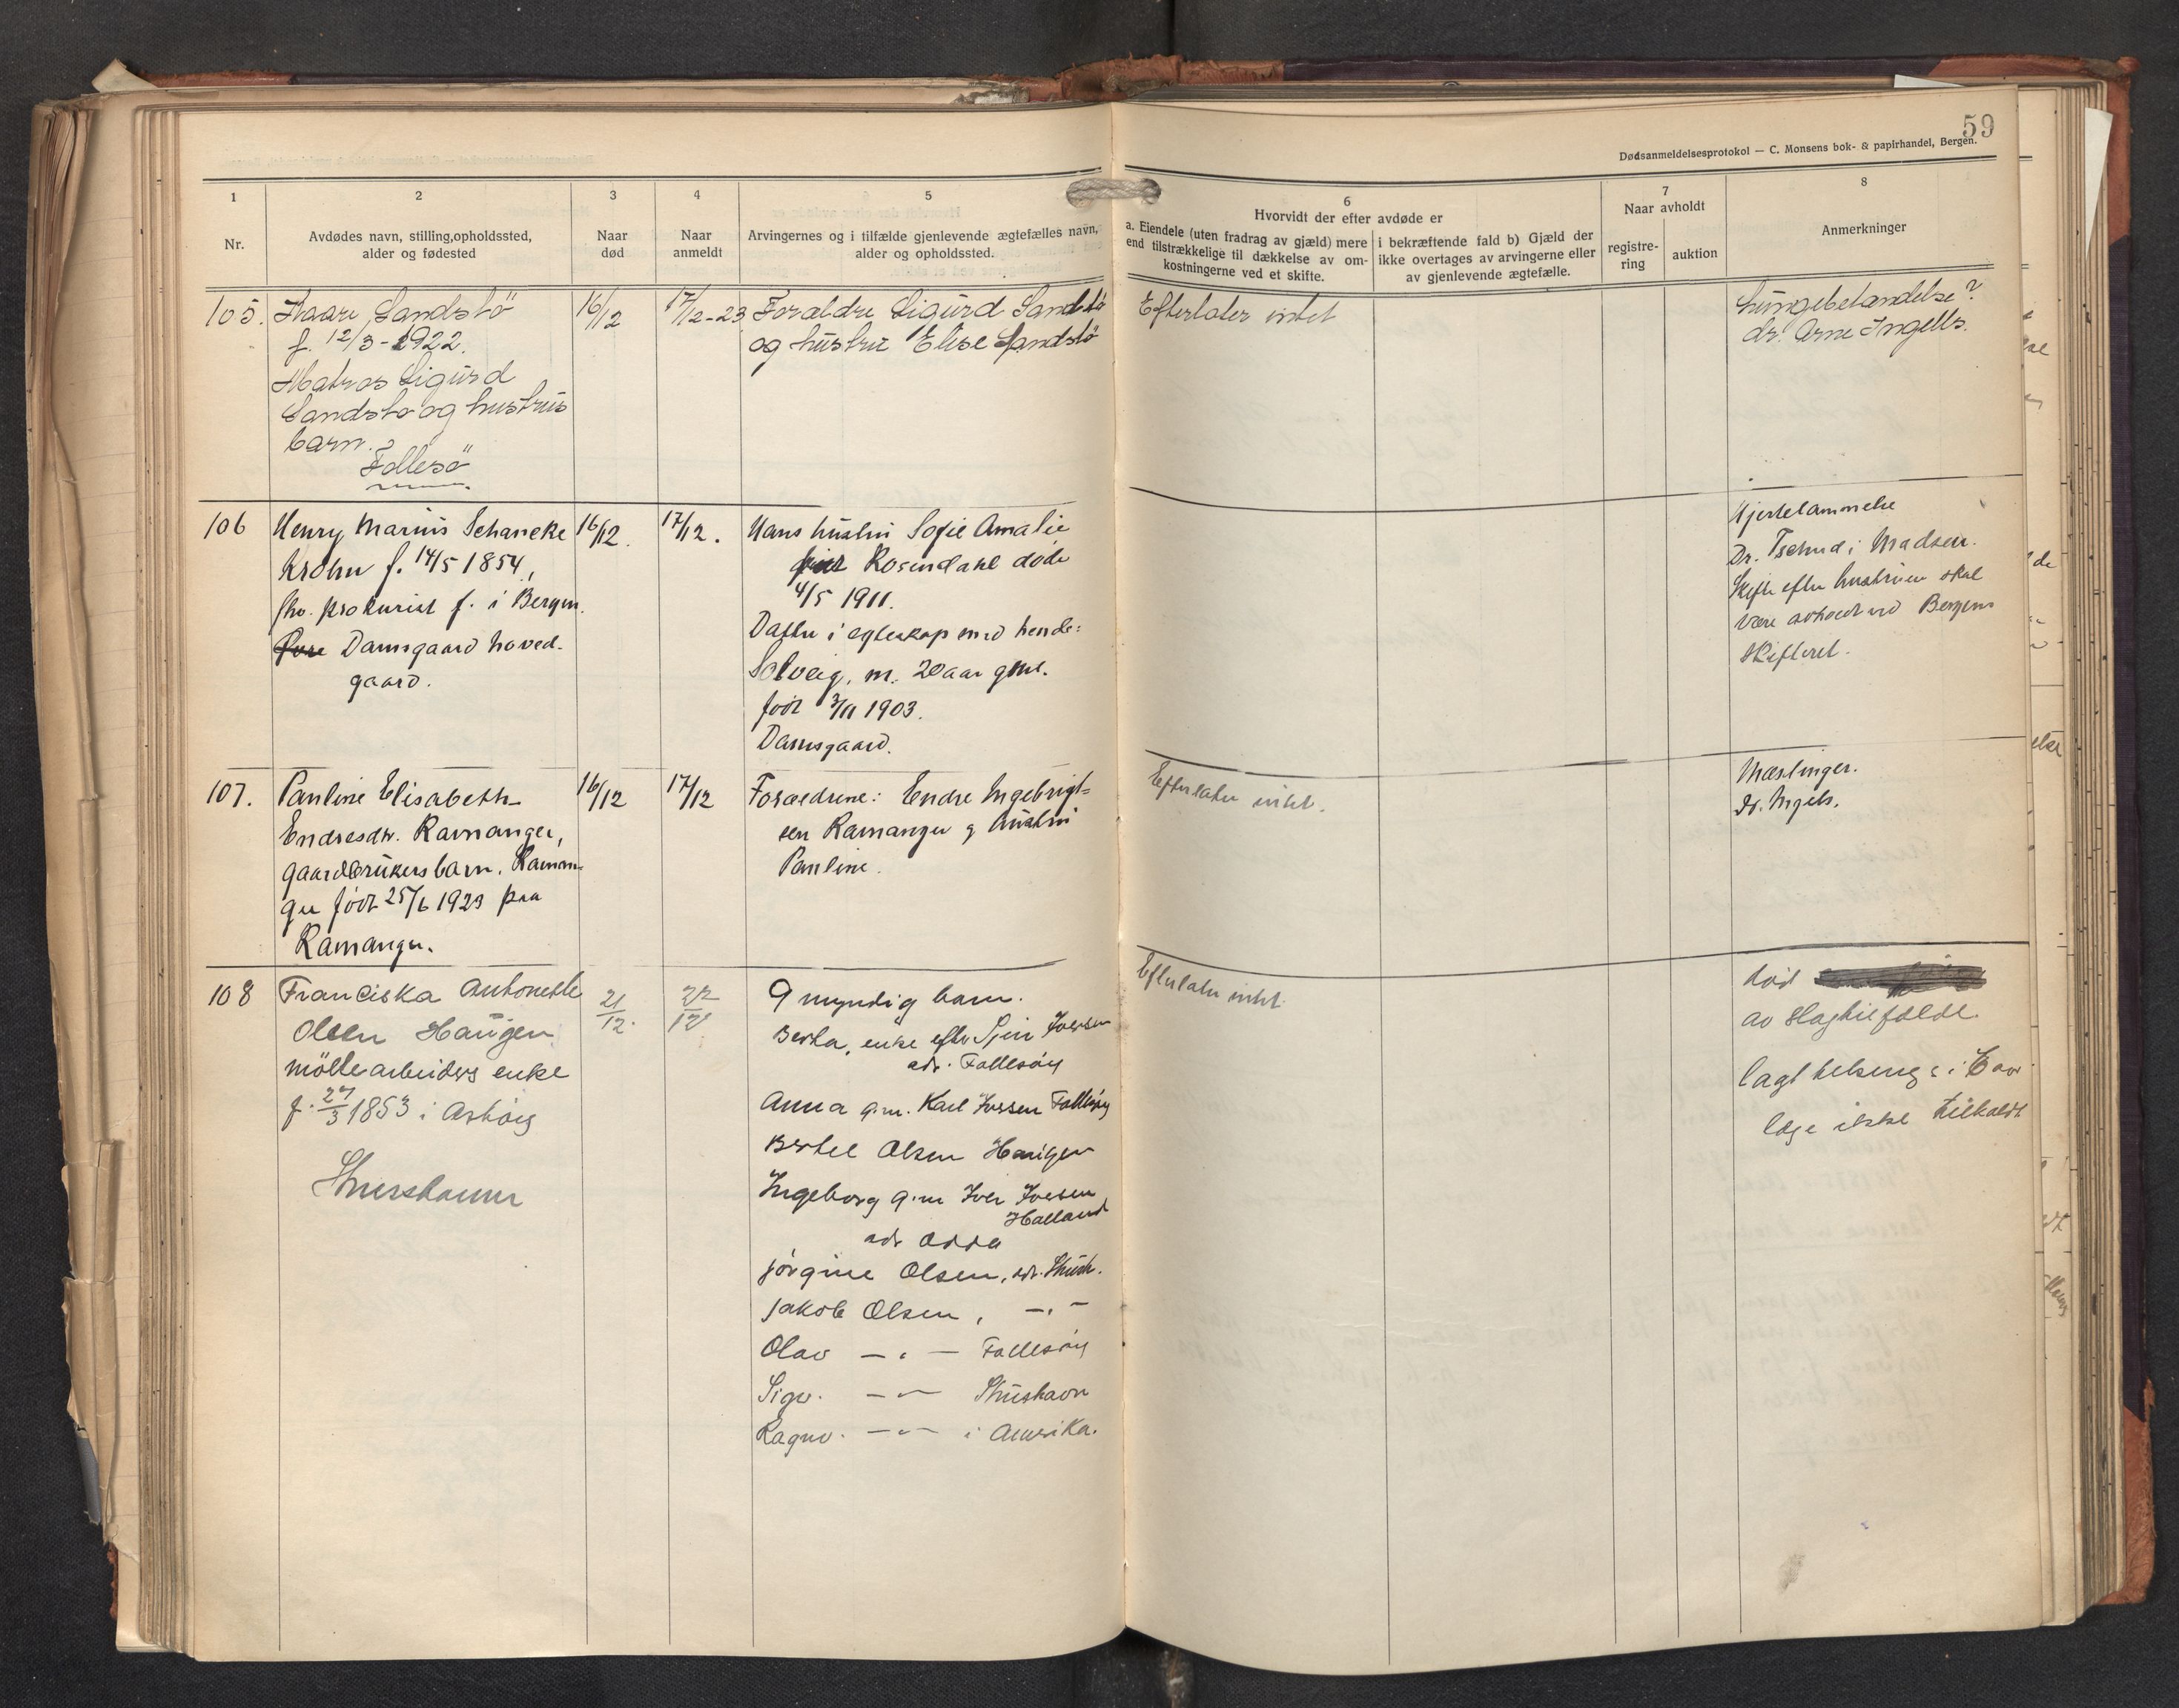 59
Dødsanmeldelsesprotokol — C. Monsens bok- & papirhandel, Bergen.
1 2 3 4 5 6 7 8
Nr.
Avdødes navn, stilling, opholdssted,
alder og fødested
Naar
død
Naar
anmeldt
Arvingernes og i tilfælde gjenlevende ægtefælles navn,
alder og opholdssted.
Hvorvidt der efter avdøde er
a. Eiendele (uten fradrag av gjæld) mere
end tilstrækkelige til dækkelse av om-
kostningerne ved et skifte.
i bekræftende fald b) Gjæld der
ikke overtages av arvingerne eller
av gjenlevende ægtefælle.
Naar avholdt
registre-
ring
auktion
Anmerkninger
105. Kaare Sandstö
f. 12/3-1922.
Matros Sigurd
Sandstø og hustrus
barn.
Follesö
16/12
17/12-23
Forældre Sigurd Sandstö
og hustru Elise Sandstö
Efterlater intet
Lungebetændelse?
dr. Arne Ingells.
106 Henry Marius Schancke
Krohn f. 14/5 1854,
fhv. prokurist f. i Bergen.
Damsgaard hoved-
gaard.
16/12.
17/12.
Hans hustru Sofie Amalie
født Rosendahl døde
4/5 1911.
Datter i egteskap med hende:
Solveig, m. 20 aar gml.
født 3/11 1903.
Damsgaard.
Hjertelammelse
Dr. Tschudi Madsen.
Skifte efter hustruen skal
være avholdt ved Bergens
skifteret.
107. Pauline Elisabeth
Endresdtr. Ramanger,
gaardbrukers barn, Raman-
ger født 25/6 1923 paa
Ramanger.
16/12
17/12
Foræeldrene: Endre Ingebrigt-
sen Ramanger og hustru
Pauline.
Efterlater intet.
Mæslinger.
dr. Ingels.
108 Franciska Antonette
Olsen Haugen
möllearbeiders enke
f. 27/3 1853 i Askøy
21/12.
22/12
9 myndig barn.
Berta, enke efter Iversen
adr. Follesøy
Anna g.m. Karl Iversen Follesøy
Bertel Olsen Haugen
Ingeborg g.m Iver Iversen
Halland
adr Odda
Jørgine Olsen, adr.
Jakob Olsen, -"-
Olav -"- Follesøy
Sigv. -"-
Ragnv. -"- i Amerika.
Efterlater intet.
død
av slagtilfælde.
læge ikke tilkaldt